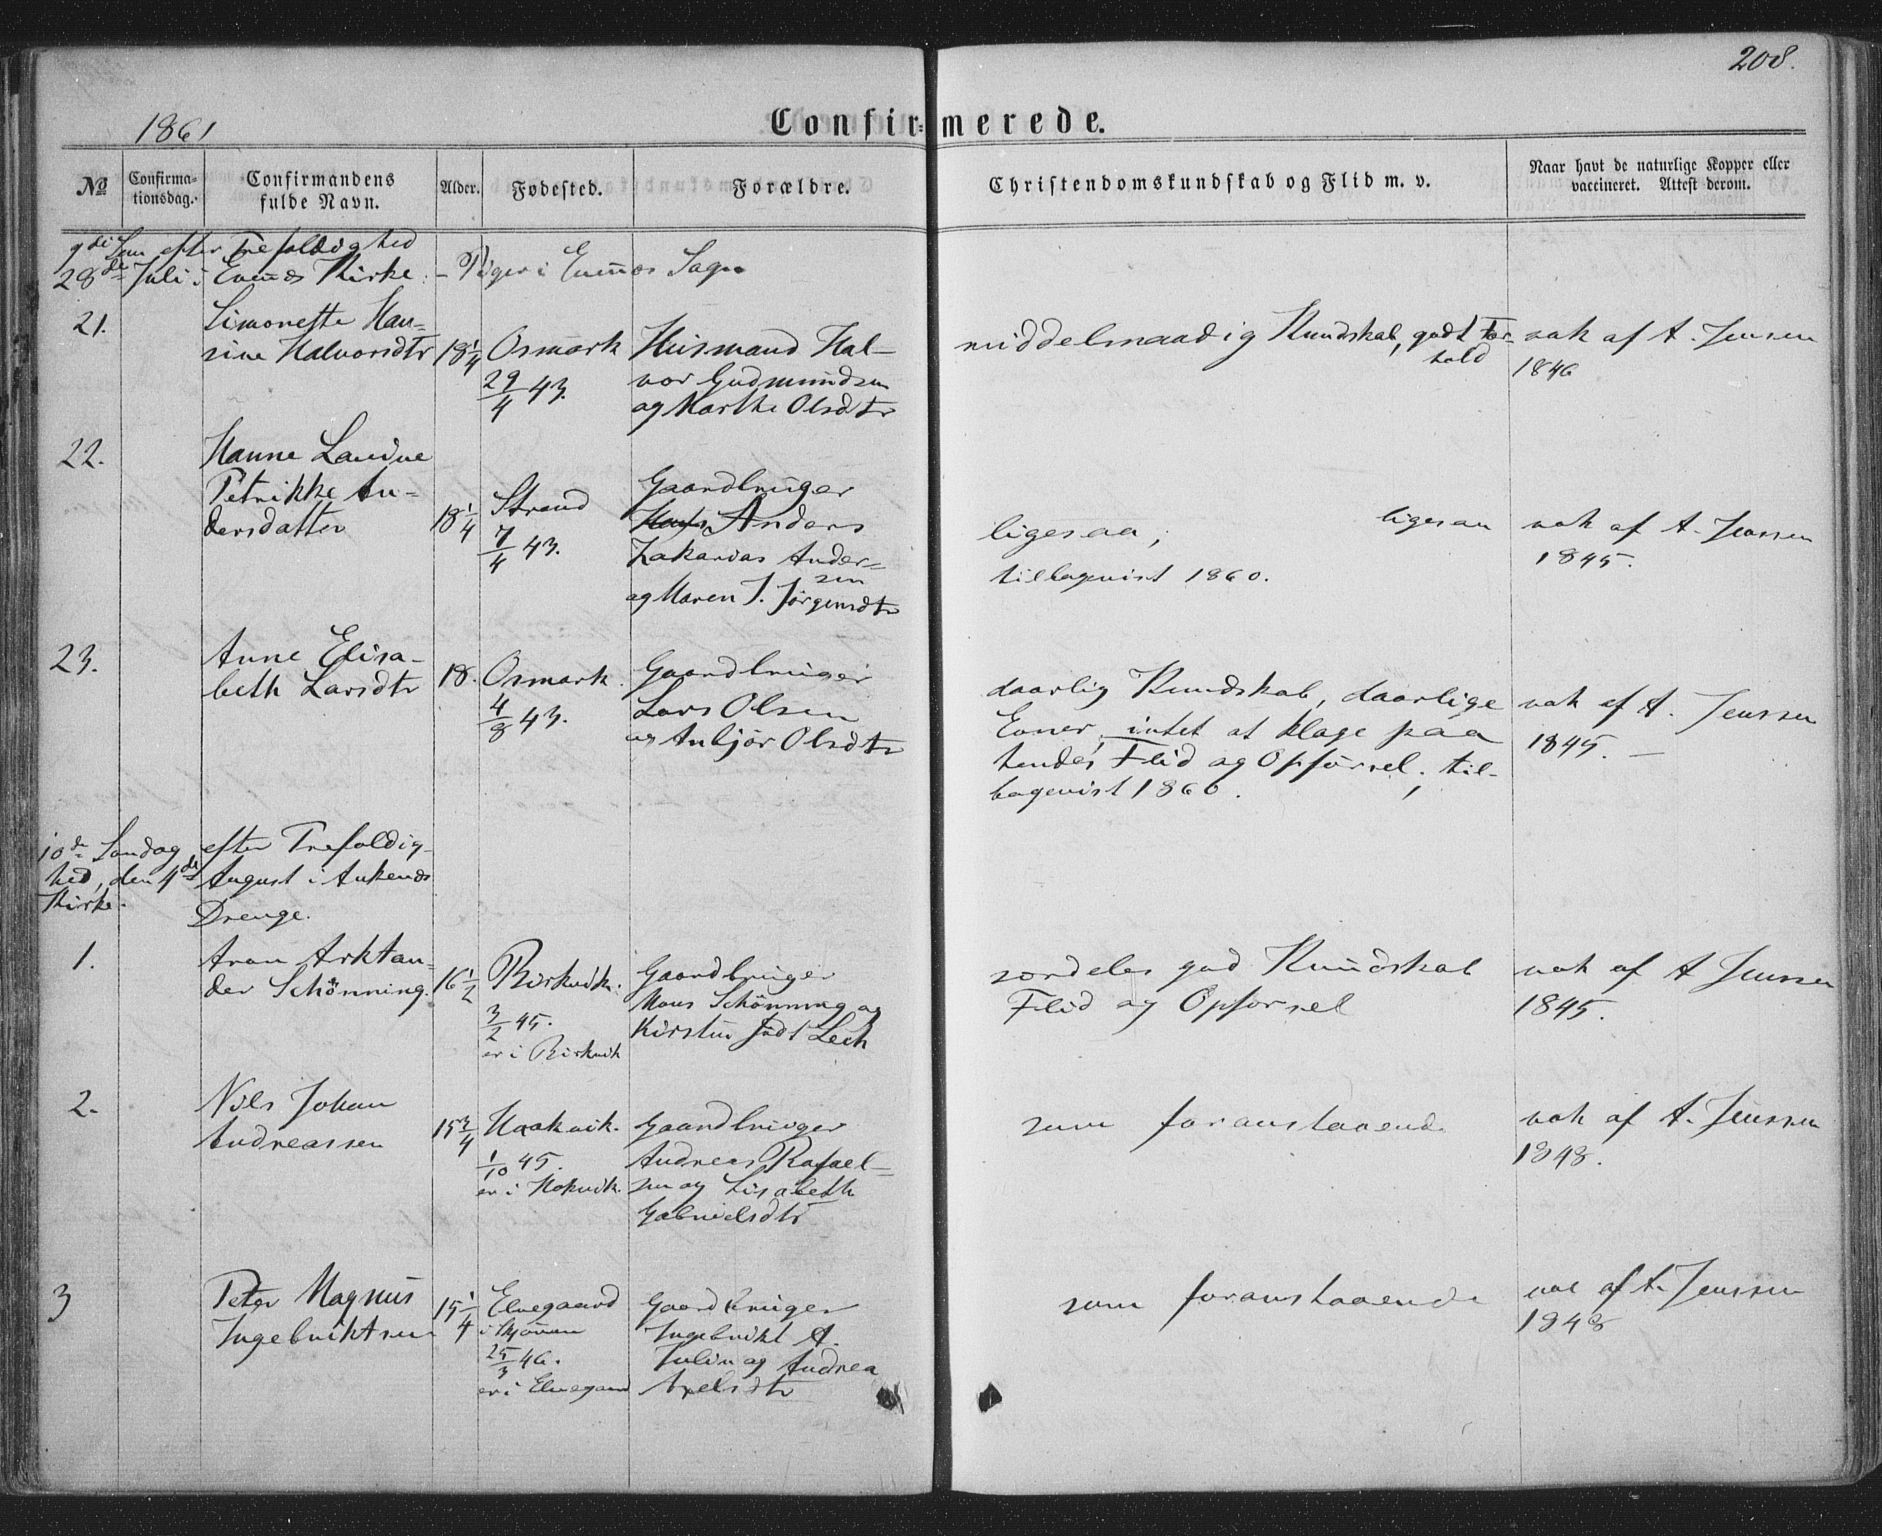 208.
1861
Confirmerede.
No
Confirmationsdag.
Confirmandens fulde Navn.
Alder.
Fødested.
Forældre.
Christendomskundskab og Flid m. v.
Naar havt de naturlige Kopper eller vaccineret. Attest derom.
9de Søn efter Trefoldighed
28de Juli i Evenæs Kirke. - Piger i Evenæs Sogn
21.
Simonette Han-
sine Halvorsdtr
18 1/4
Osmark
29/4 43.
Huusmand Hal-
vor Gudmundsen
og Marthe Olsdtr
middelmaadig Kundskab, godt For-
hold
vak af A. Jenssen
1846
22.
Hanne Lovise
Petrikke An-
dersdatter
18 1/4
Strand
7/4 43.
Gaardbruger
Anders
Zakarias Ander-
sen
og Maren J. Jørgensdtr
ligesaa, ligesaa
tilbagevist 1860.
vak af A. Jenssen
1845.
23.
Anne Elisa-
beth Larsdtr
18.
Osmark.
4/8 43.
Gaardbruger
Lars Olsen
og Anbjør Olsdtr
daarlig Kundskab, daarlige
Evner, intet at klage paa
hendes Flid og Opførsel, til-
bagevist 1860.
vak af A. Jenssen
1845. -
10de Søndag efter Trefoldig-
hed, den 4de August i Ankenæs
Kirke.
Drenge.
1.
Aron Arktan-
der Schønning.
16 1/2
Birkvik.
3/2 45.
er i Birkvik
Gaardbruger
Mons Schønning og
Kirsten Lech
særdeles god Kundskab
Flid og Opførsel
vak af A Jenssen
1845.
2.
Nils Johan
Andreassen
15 3/4
Haakvik.
1/10 45.
er i Hokvik.
Gaardbruger
Andreas Rafael-
sen og Lisabeth
Gabrielsdtr
som foranstaaende
vak af A. Jenssen
1848.
3
Peter Magnus
Ingebriktsen
15 1/4
Elvegaard
i Skjomen
25/3 46.
er i Elvegaard
Gaardbruger
Ingebrikt A.
Julin og Andrea
Axelsdtr
som foranstaaende
vac af A. Jenssen
1848